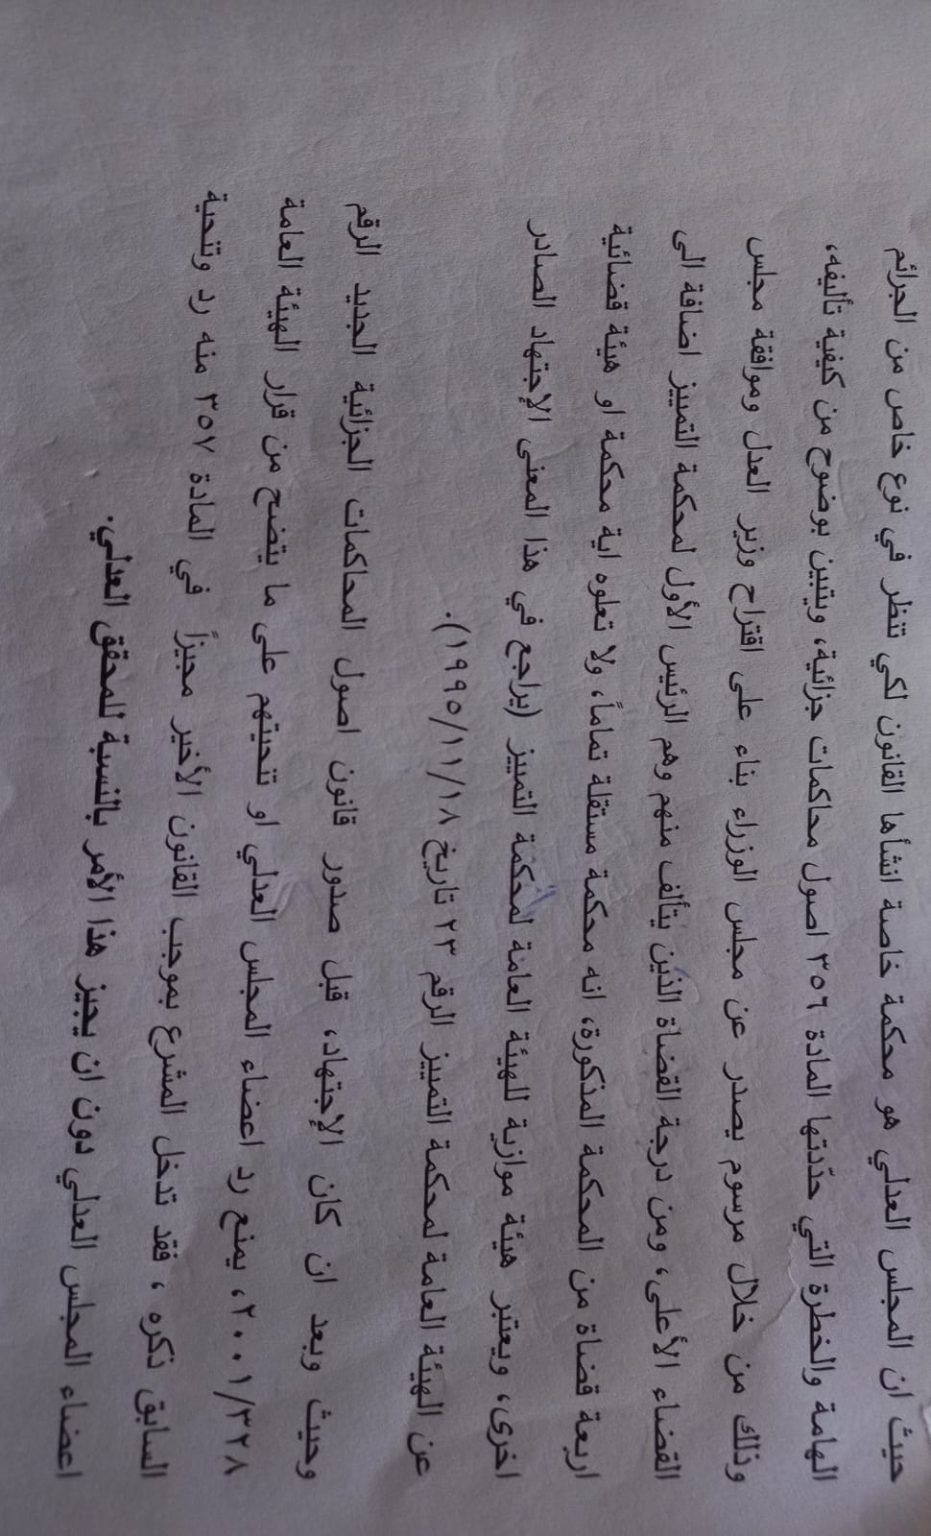 حيث ان المجلس العدلي هو محكمة خاصة انشأها القانون لكي تنظر في نوع خاص من الجرائم
الهامة والخطرة التي حدّدتها المادة ٣٥٦ اصول محاكمات جزائية، ويتبين بوضوح من كيفية تأليفه،
وذلك من خلال مرسوم يصدر عن مجلس الوزراء بناء على اقتراح وزير العدل وموافقة مجلس
القضاء الأعلى، ومن درجة القضاة الذين يتألف منهم وهم الرئيس الأول لمحكمة التمييز اضافة الى
اربعة قضاة من المحكمة المذكورة، انه محكمة مستقلة تماماً، ولا تعلوه اية محكمة او هيئة قضائية
اخرى، ويعتبر هيئة موازية للهيئة العامة لمحكمة التمييز (يراجع في هذا المعنى الإجتهاد الصادر
عن الهيئة العامة لمحكمة التمييز الرقم ٢٣ تاريخ ١٩٩٥/١١/١٨).
وحيث وبعد ان كان الإجتهاد، قبل صدور قانون اصول المحاكمات الجزائية الجديد الرقم
٢٠٠١/٣٢٨، يمنع رد اعضاء المجلس العدلي او تنحيتهم على ما يتضح من قرار الهيئة العامة
السابق ذكره ، فقد تدخل المشرع بموجب القانون الأخير مجيزاً في المادة ٣٥٧ منه رد وتنحية
اعضاء المجلس العدلي دون ان يجيز هذا الأمر بالنسبة للمحقق العدلي.